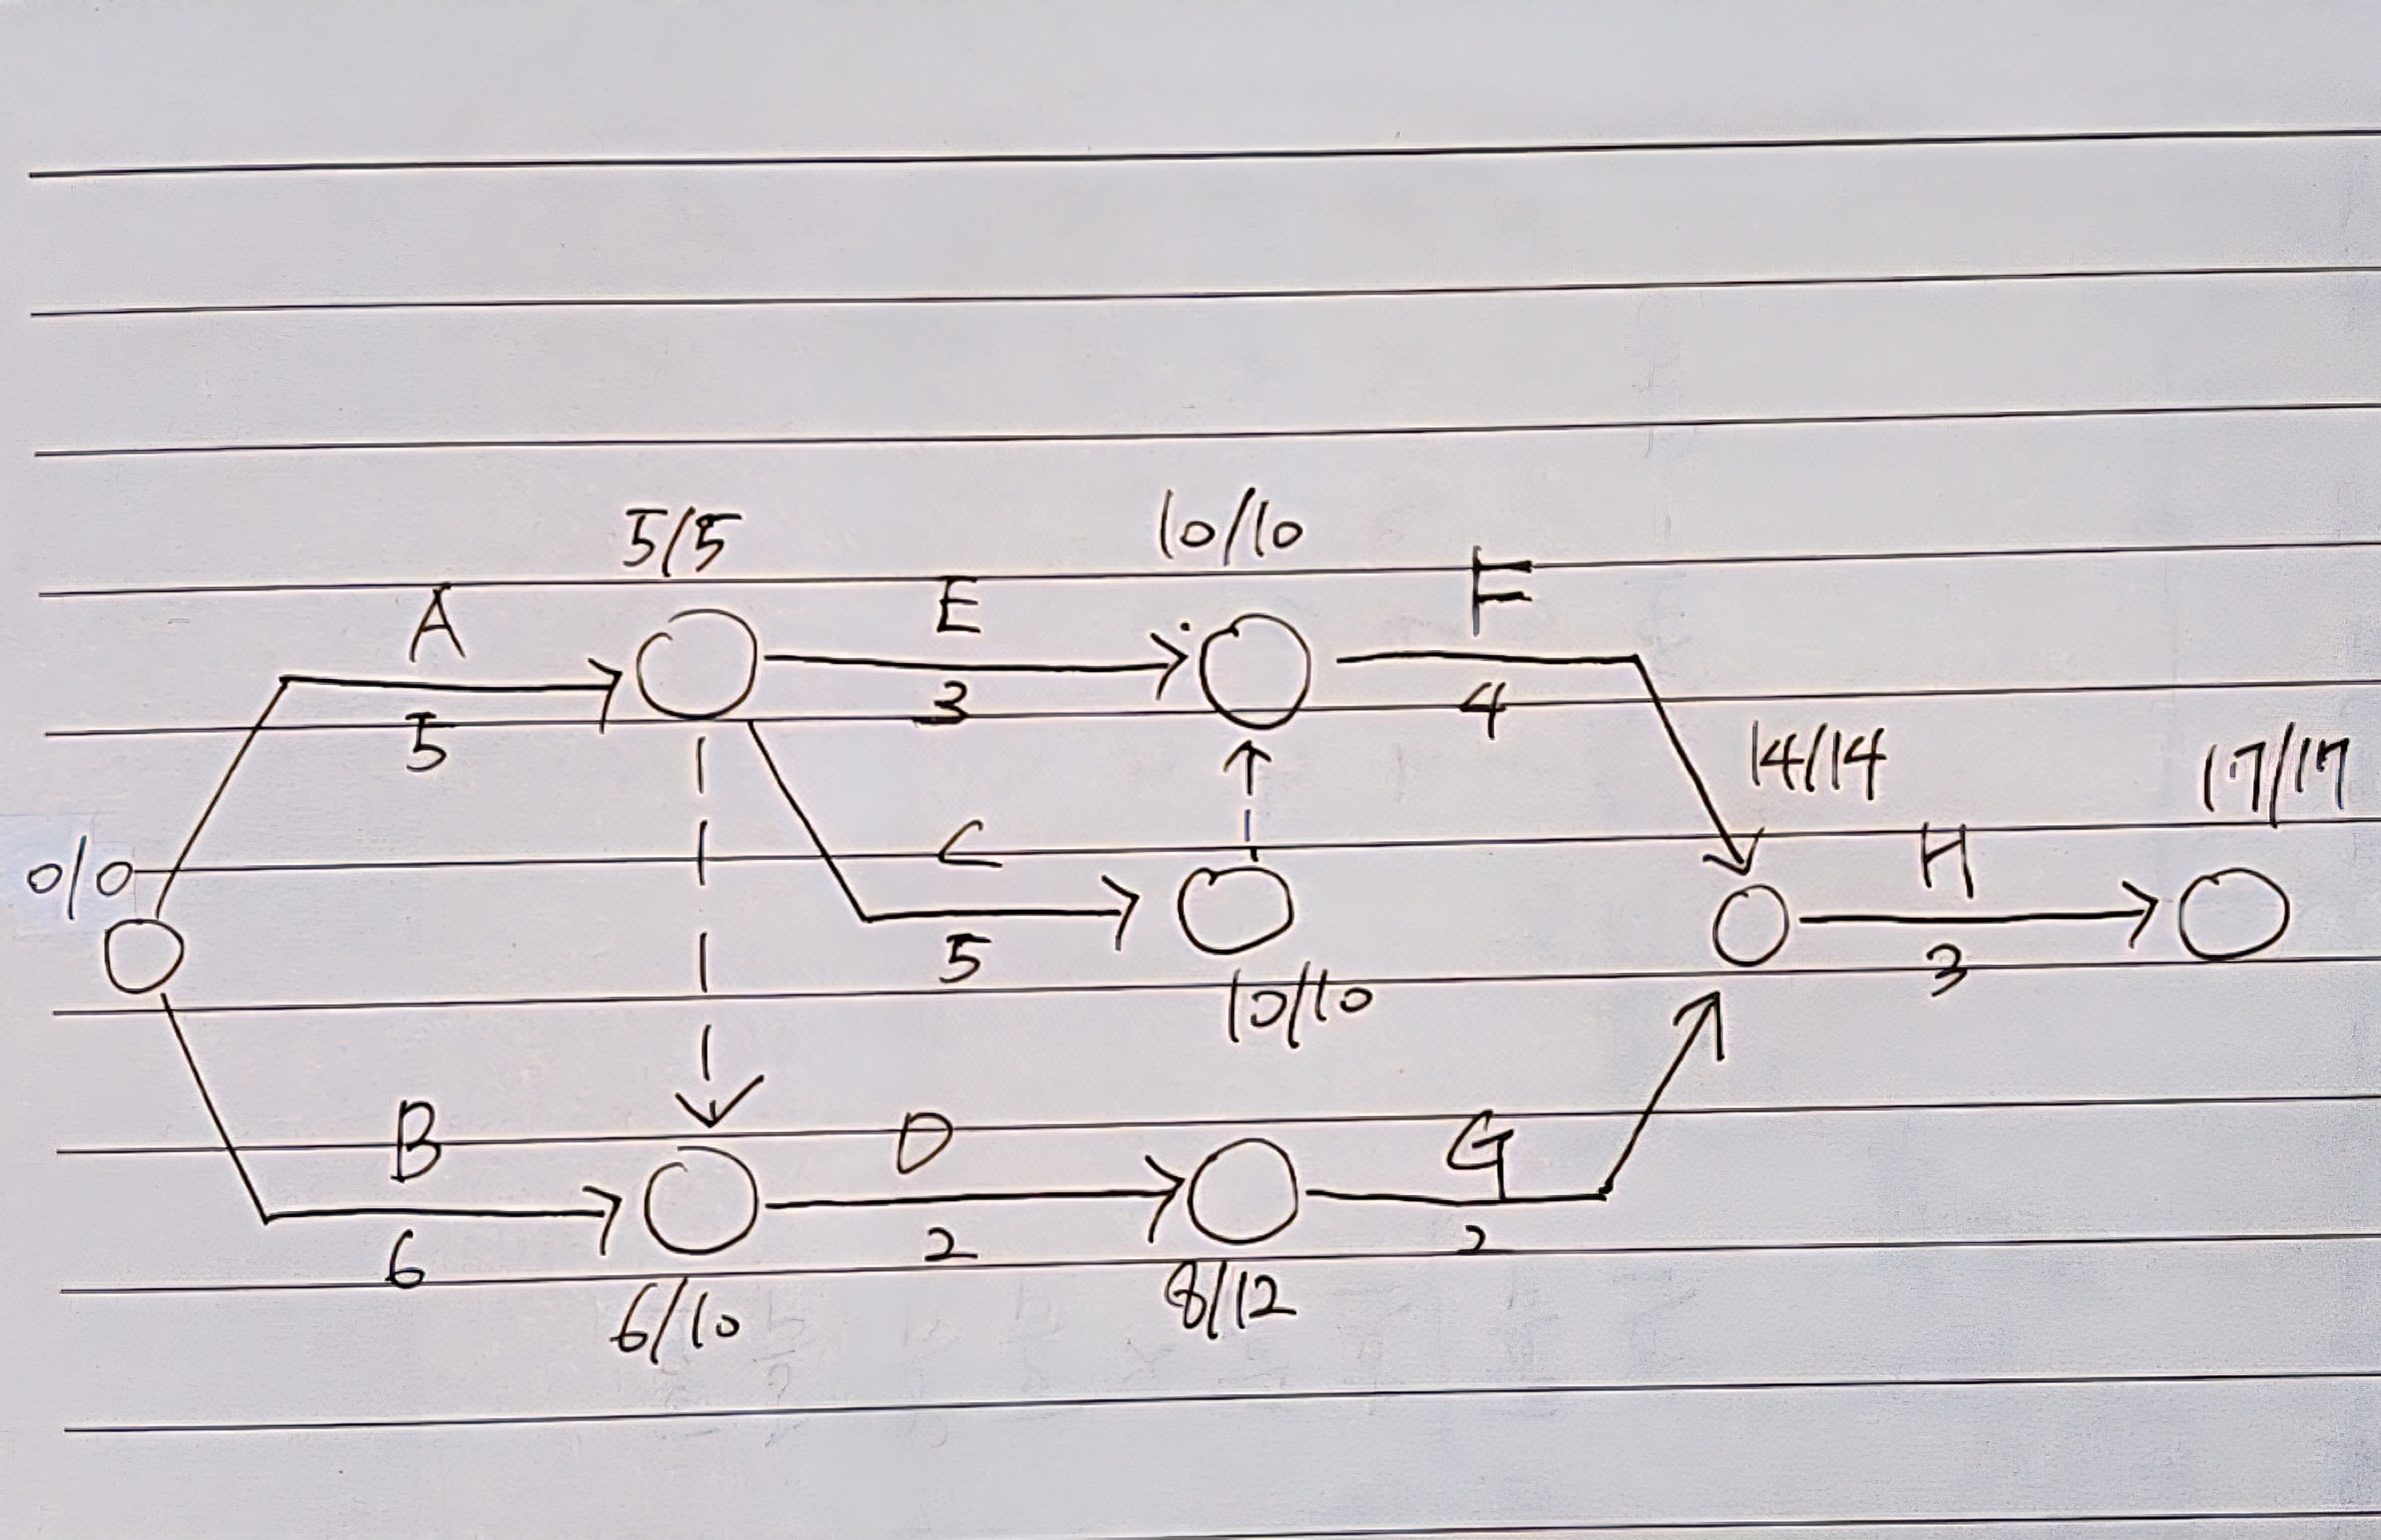 5/5
10/10
A
E
F
5
3
4
14/14
17/17
0/0
C
H
5
3
10/10
B
D
G
6
2
2
6/10
8/12